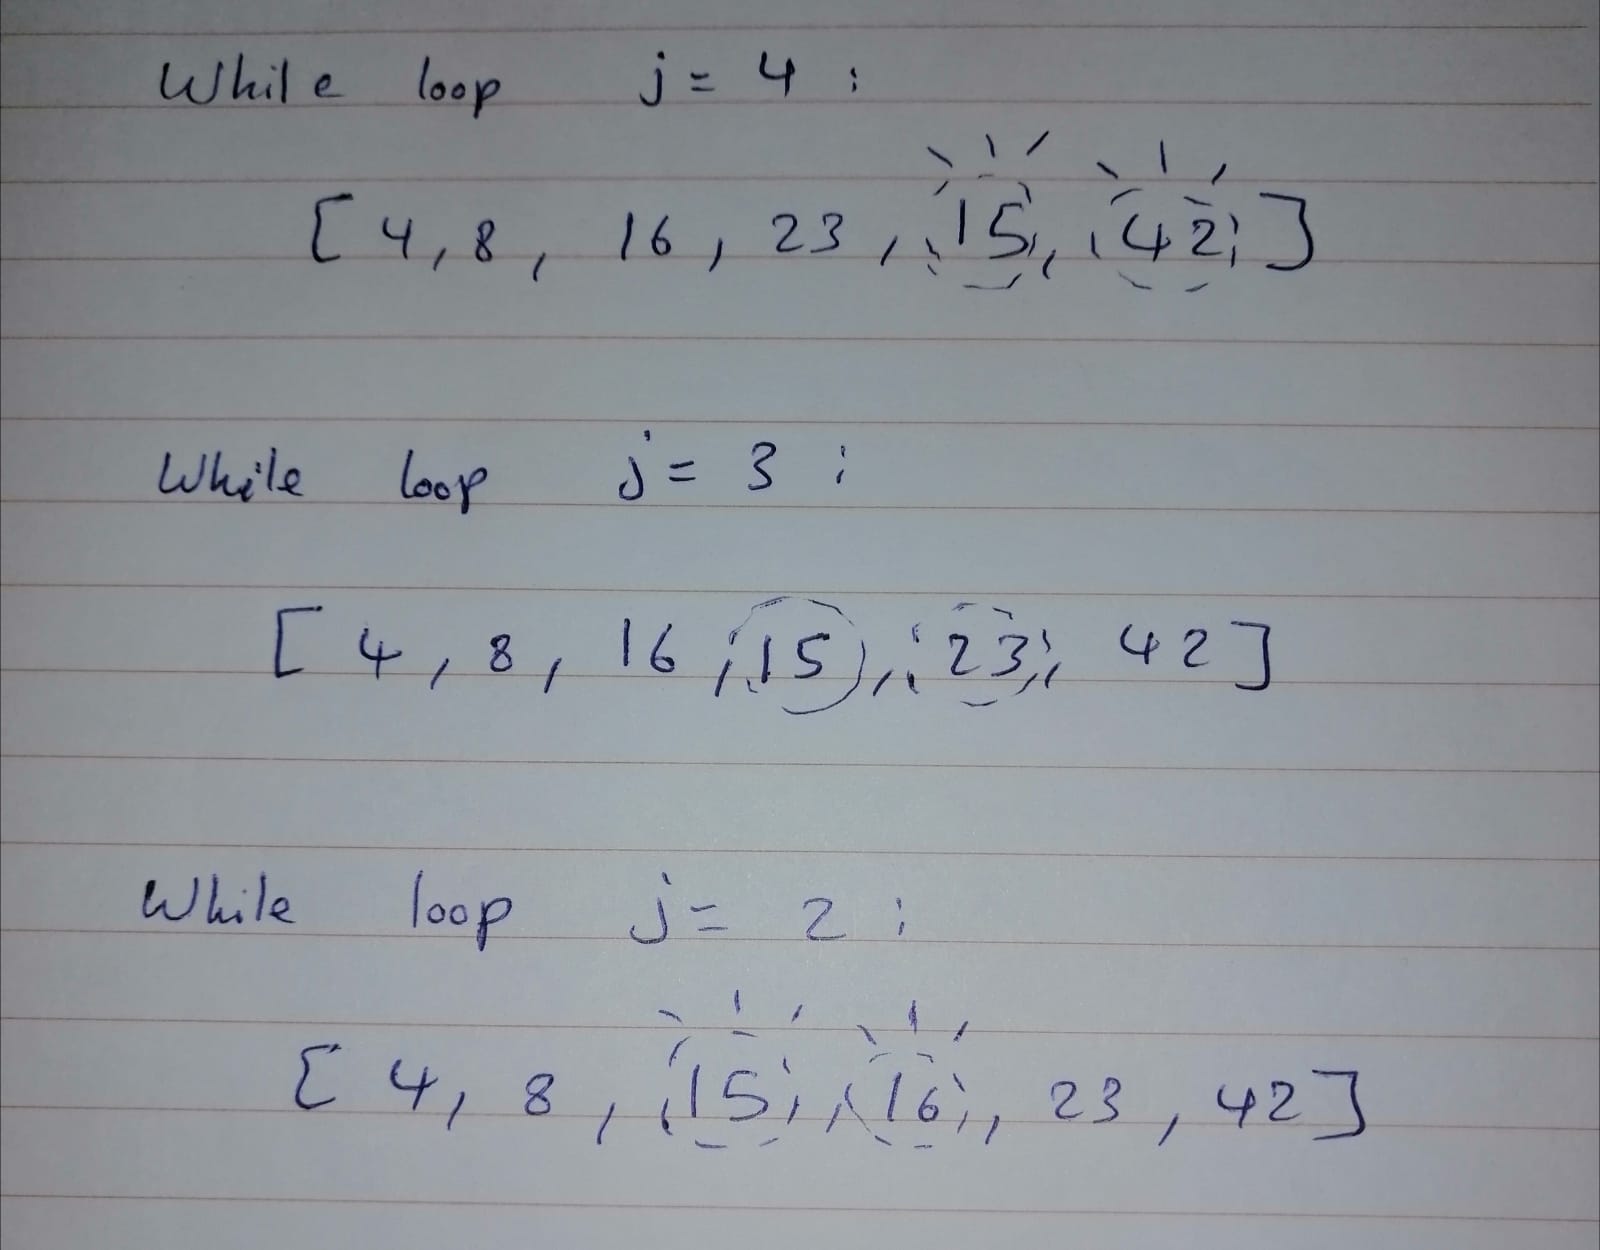 While loop j = 4 :
[ 4, 8, 16, 23, 15, 42 ]
While loop j = 3 :
[ 4, 8, 16, 15, 23, 42 ]
While loop j = 2 :
[ 4, 8, 15, 16, 23, 42 ]